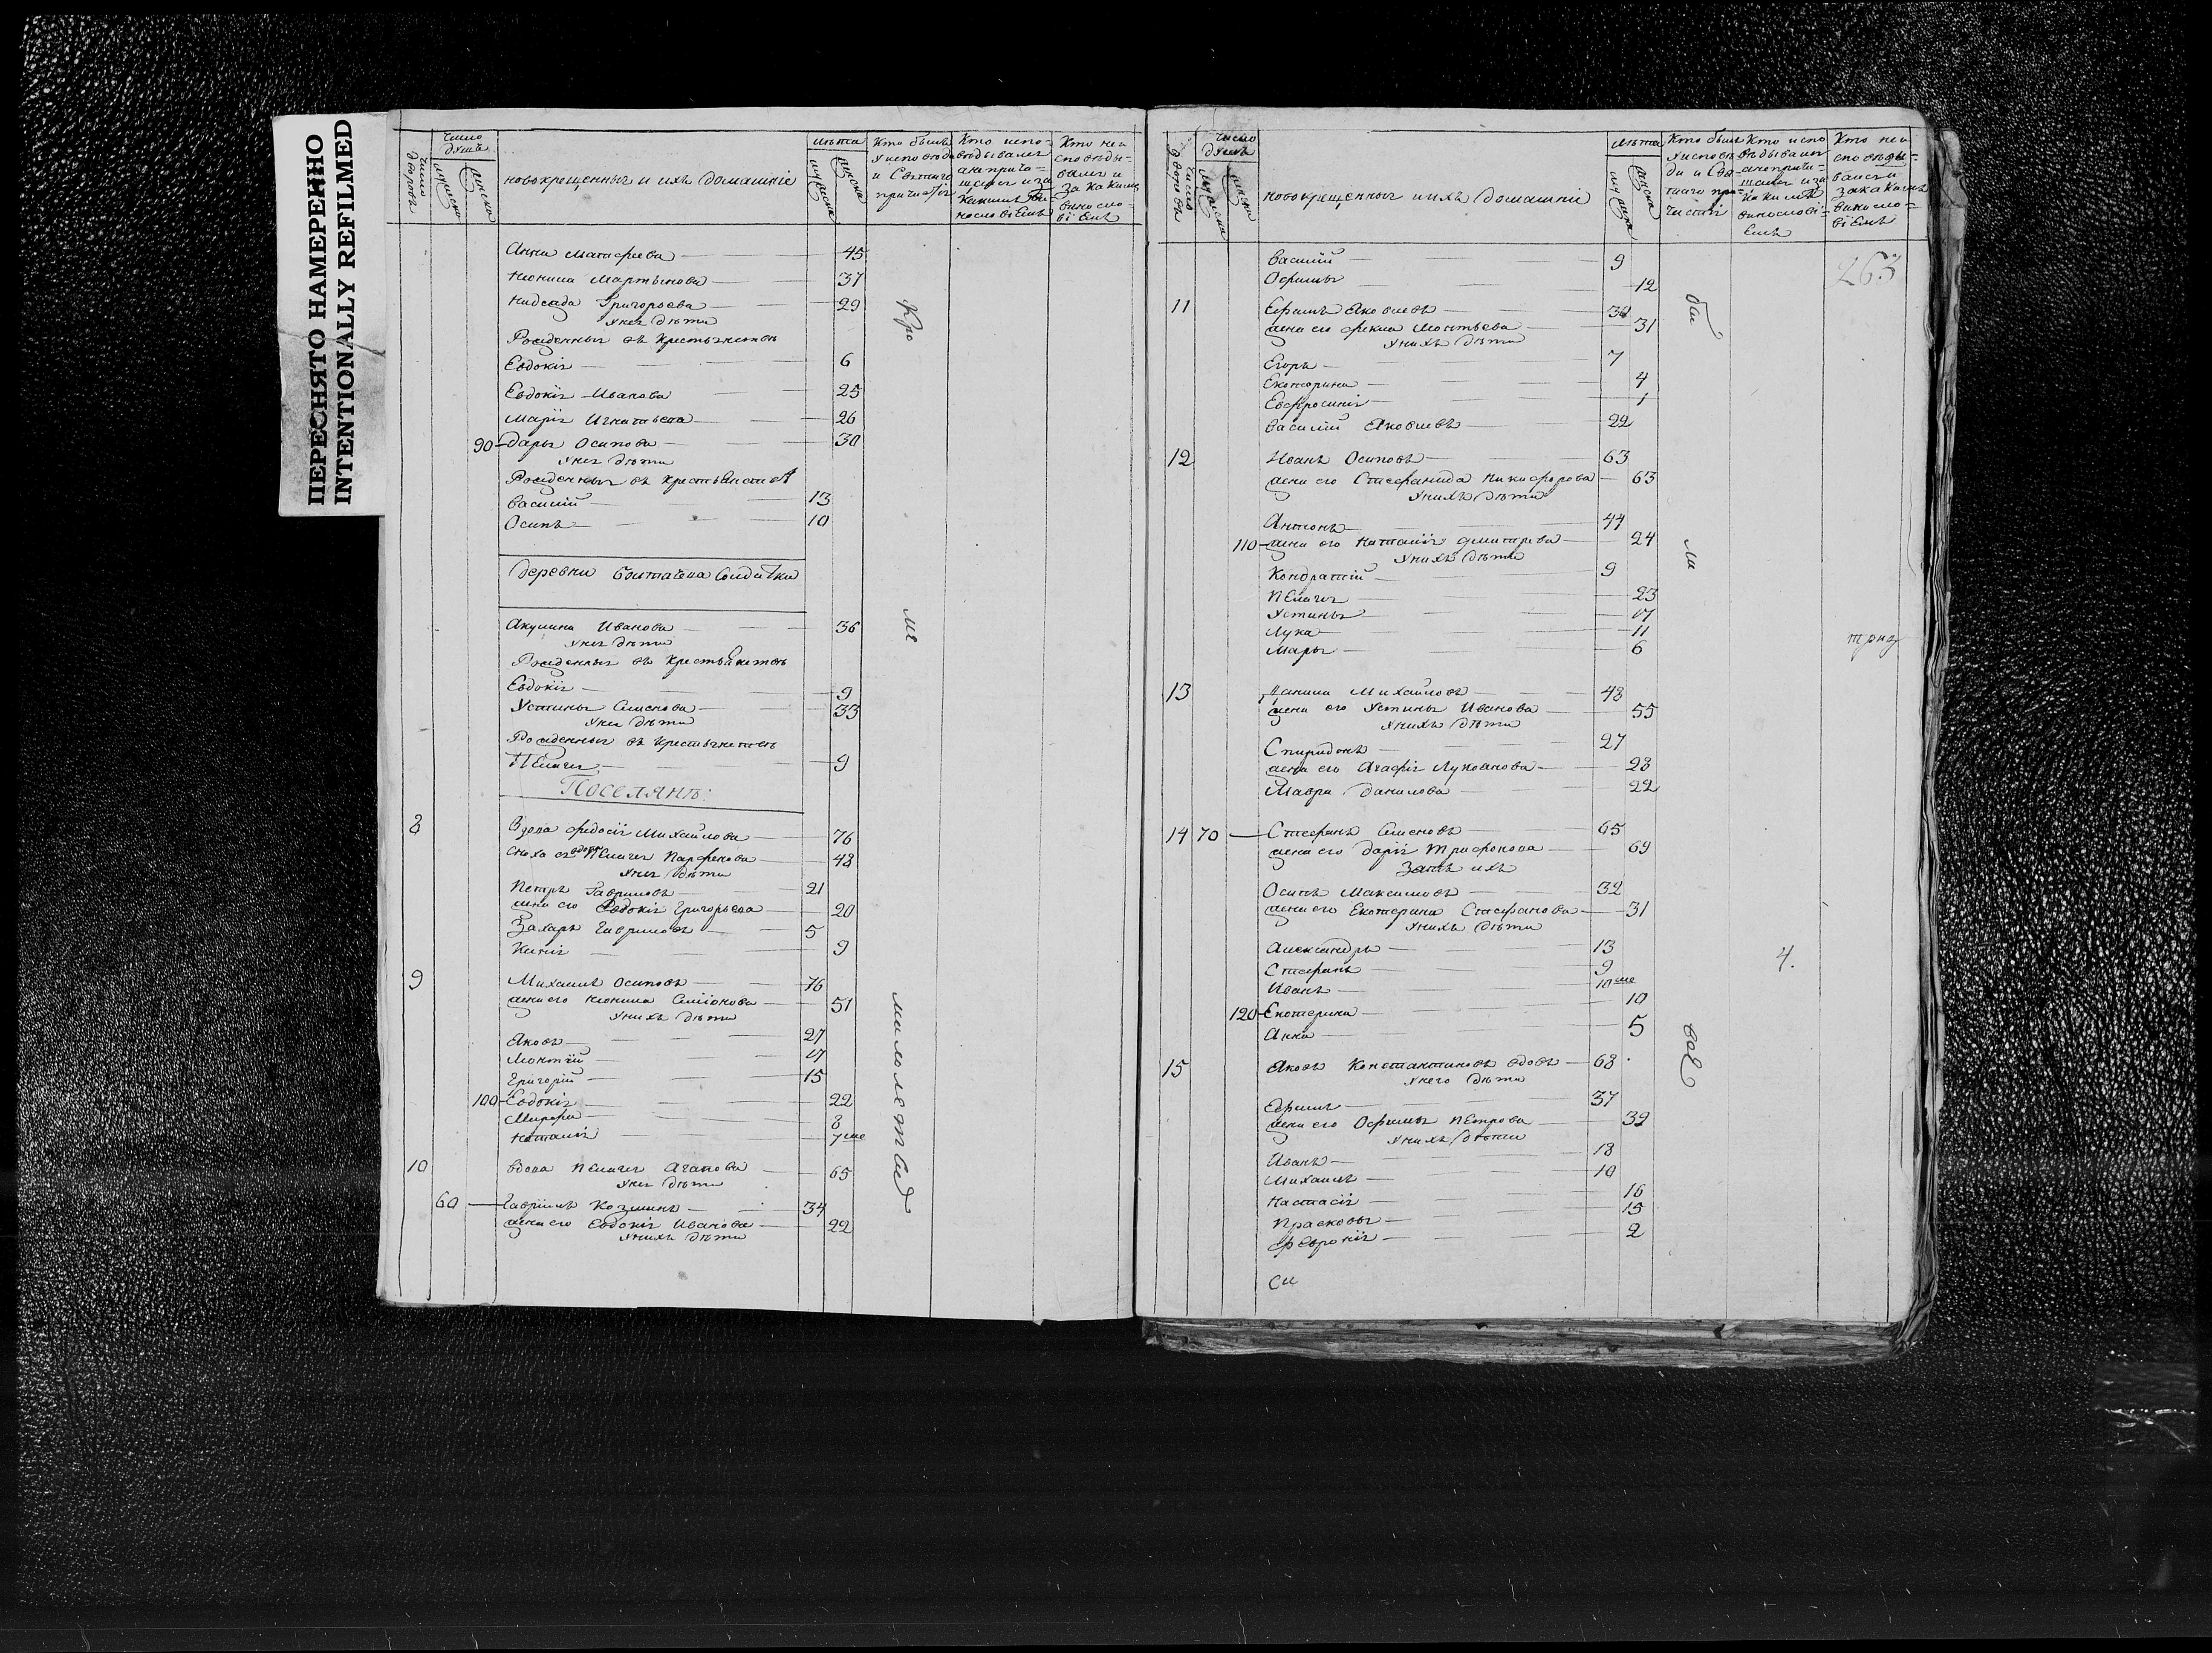 ПЕРЕСНЯТО НАМЕРЕННО
INTENTIONALLY REFILMED
число дворовъ
число душъ
мужска
женска
новокрещенныя и ихъ домашнiе
лѣта
мужска
женска
Кто были у исповѣди и Святаго причастiя
Кто исповѣдывался а не причащался и за какимъ винословiемъ
Кто не исповѣдывался и за какимъ винословiемъ
Анна Матвѣева 45
Мартынова 37
Надежда Григорьева 29
у нея дѣти
Рожденныя въ крестьянствѣ
Евдокiя 6
Евдокiя Иванова 25
Марiя Игнатьева 26
90 Дарья Осипова 30
у нея дѣти
Рожденныя въ крестьянствѣ
Василiй 13
Осипъ 10
деревни Солдатки
Акулина Иванова 36
у нея дѣти
Рожденныя въ крестьянствѣ
Евдокiя 9
Устинья Семенова 33
у нея дѣти
Рожденныя въ крестьянствѣ
Пелагея 9
Поселянѣ:
8 Вдова Федосiя Михайлова 76
Сноха ея вдова Пелагея Парфенова 48
у нея дѣти
Петръ Гавриловъ 21
жена его Евдокiя Григорьева 20
Захаръ Гавриловъ 5
9
9 Михаилъ Осиповъ 76
жена его Семiонова 51
у нихъ дѣти
Яковъ 27
17
Григорiй 15
100 Евдокiя 22
Марфа 8
Наталья 7 ме
10 Вдова Пелагея Агапова 65
у нея дѣти
60 Гаврiилъ Козминъ 34
жена его Евдокiя Иванова 22
у нихъ дѣти
Кро
ме
малолетнъ
число дворовъ
число душъ
мужска
женска
новокрещенныя и ихъ домашнiе
лѣта
мужска
женска
Кто были у исповѣди и Святаго причастiя
Кто исповѣдывался а не причащался и за какимъ винословiемъ
Кто не исповѣдывался и за какимъ винословiемъ
263
Василiй 9
Офимья 12
11 Ефимъ Яковлевъ 32
жена его Фекла Леонтьева 31
у нихъ дѣти
Егоръ 7
Екатерина 4
Евфросинiя 1
Василiй Яковлевъ 22
12 Иванъ Осиповъ 63
жена его Стефанида Никифорова 63
у нихъ дѣти
Антонъ 44
110 жена его Наталiя Дмитрева 24
у нихъ дѣти
Кондратiй 9
Пелагея 23
Устинья 17
Лука 11
Марья 6
13 Данила Михайловъ 48
жена его Устинья Иванова 55
у нихъ дѣти
Спиридонъ 27
жена его Агафiя Лукоянова 28
Мавра Данилова 22
14 70 Стефанъ Семеновъ 65
жена его Дарiя Трифонова 69
Зять ихъ
Осипъ Максимовъ 32
жена его Екатерина Стефанова 31
у нихъ дѣти
Александръ 13
Стефанъ 9
Иванъ 10 ме
120 Екатерина 10
Анна 5
15 Яковъ Константиновъ вдовъ 68
у него дѣти
Ефимъ 37
жена его Офимья Петрова 32
у нихъ дѣти
Иванъ 18
Михаилъ 10
Настасiя 16
Прасковья 15
Февронiя 2
бы
ли
всѣ
4.